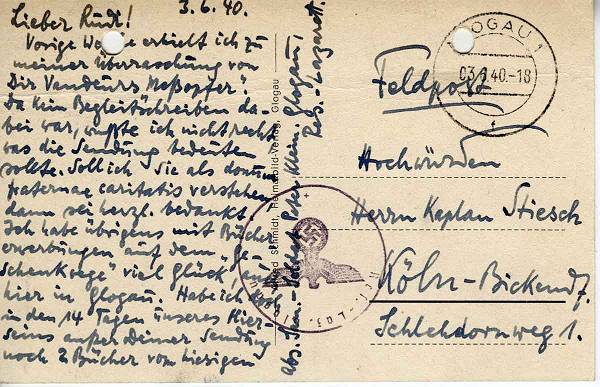 3.6.40.
Lieber Rudi!
Vorige Woche erhielt ich zu
meiner Überraschung von
Dir Vandeurs "Meßopfer".
Da kein Begleitschreiben da-
bei war, wußte ich nicht recht,
was die Sendung bedeuten
sollte. Soll ich Sie als donum
fraternae caritatis verstehen,
dann sei herzl. bedankt.
Ich habe übrigens mit Bücher-
erwerbungen auf dem "Ge-
schenkwege" viel Glück, auch
hier in Glogau. Habe ich doch
in den 14 Tagen unseres Hier-
seins außer Deiner Sendung
noch 2 Bücher vom hiesigen
Abs. Peter Klein, Glogau,
Res.-Lazarett.
Schmidt, Heimatbild-Verlag, Glogau
GLOGAU 1
03.6.40.-18
Feldpost
Hochwürden
Herrn Kaplan Stiesch
Köln-Bickendf.
Schlehdornweg 1.